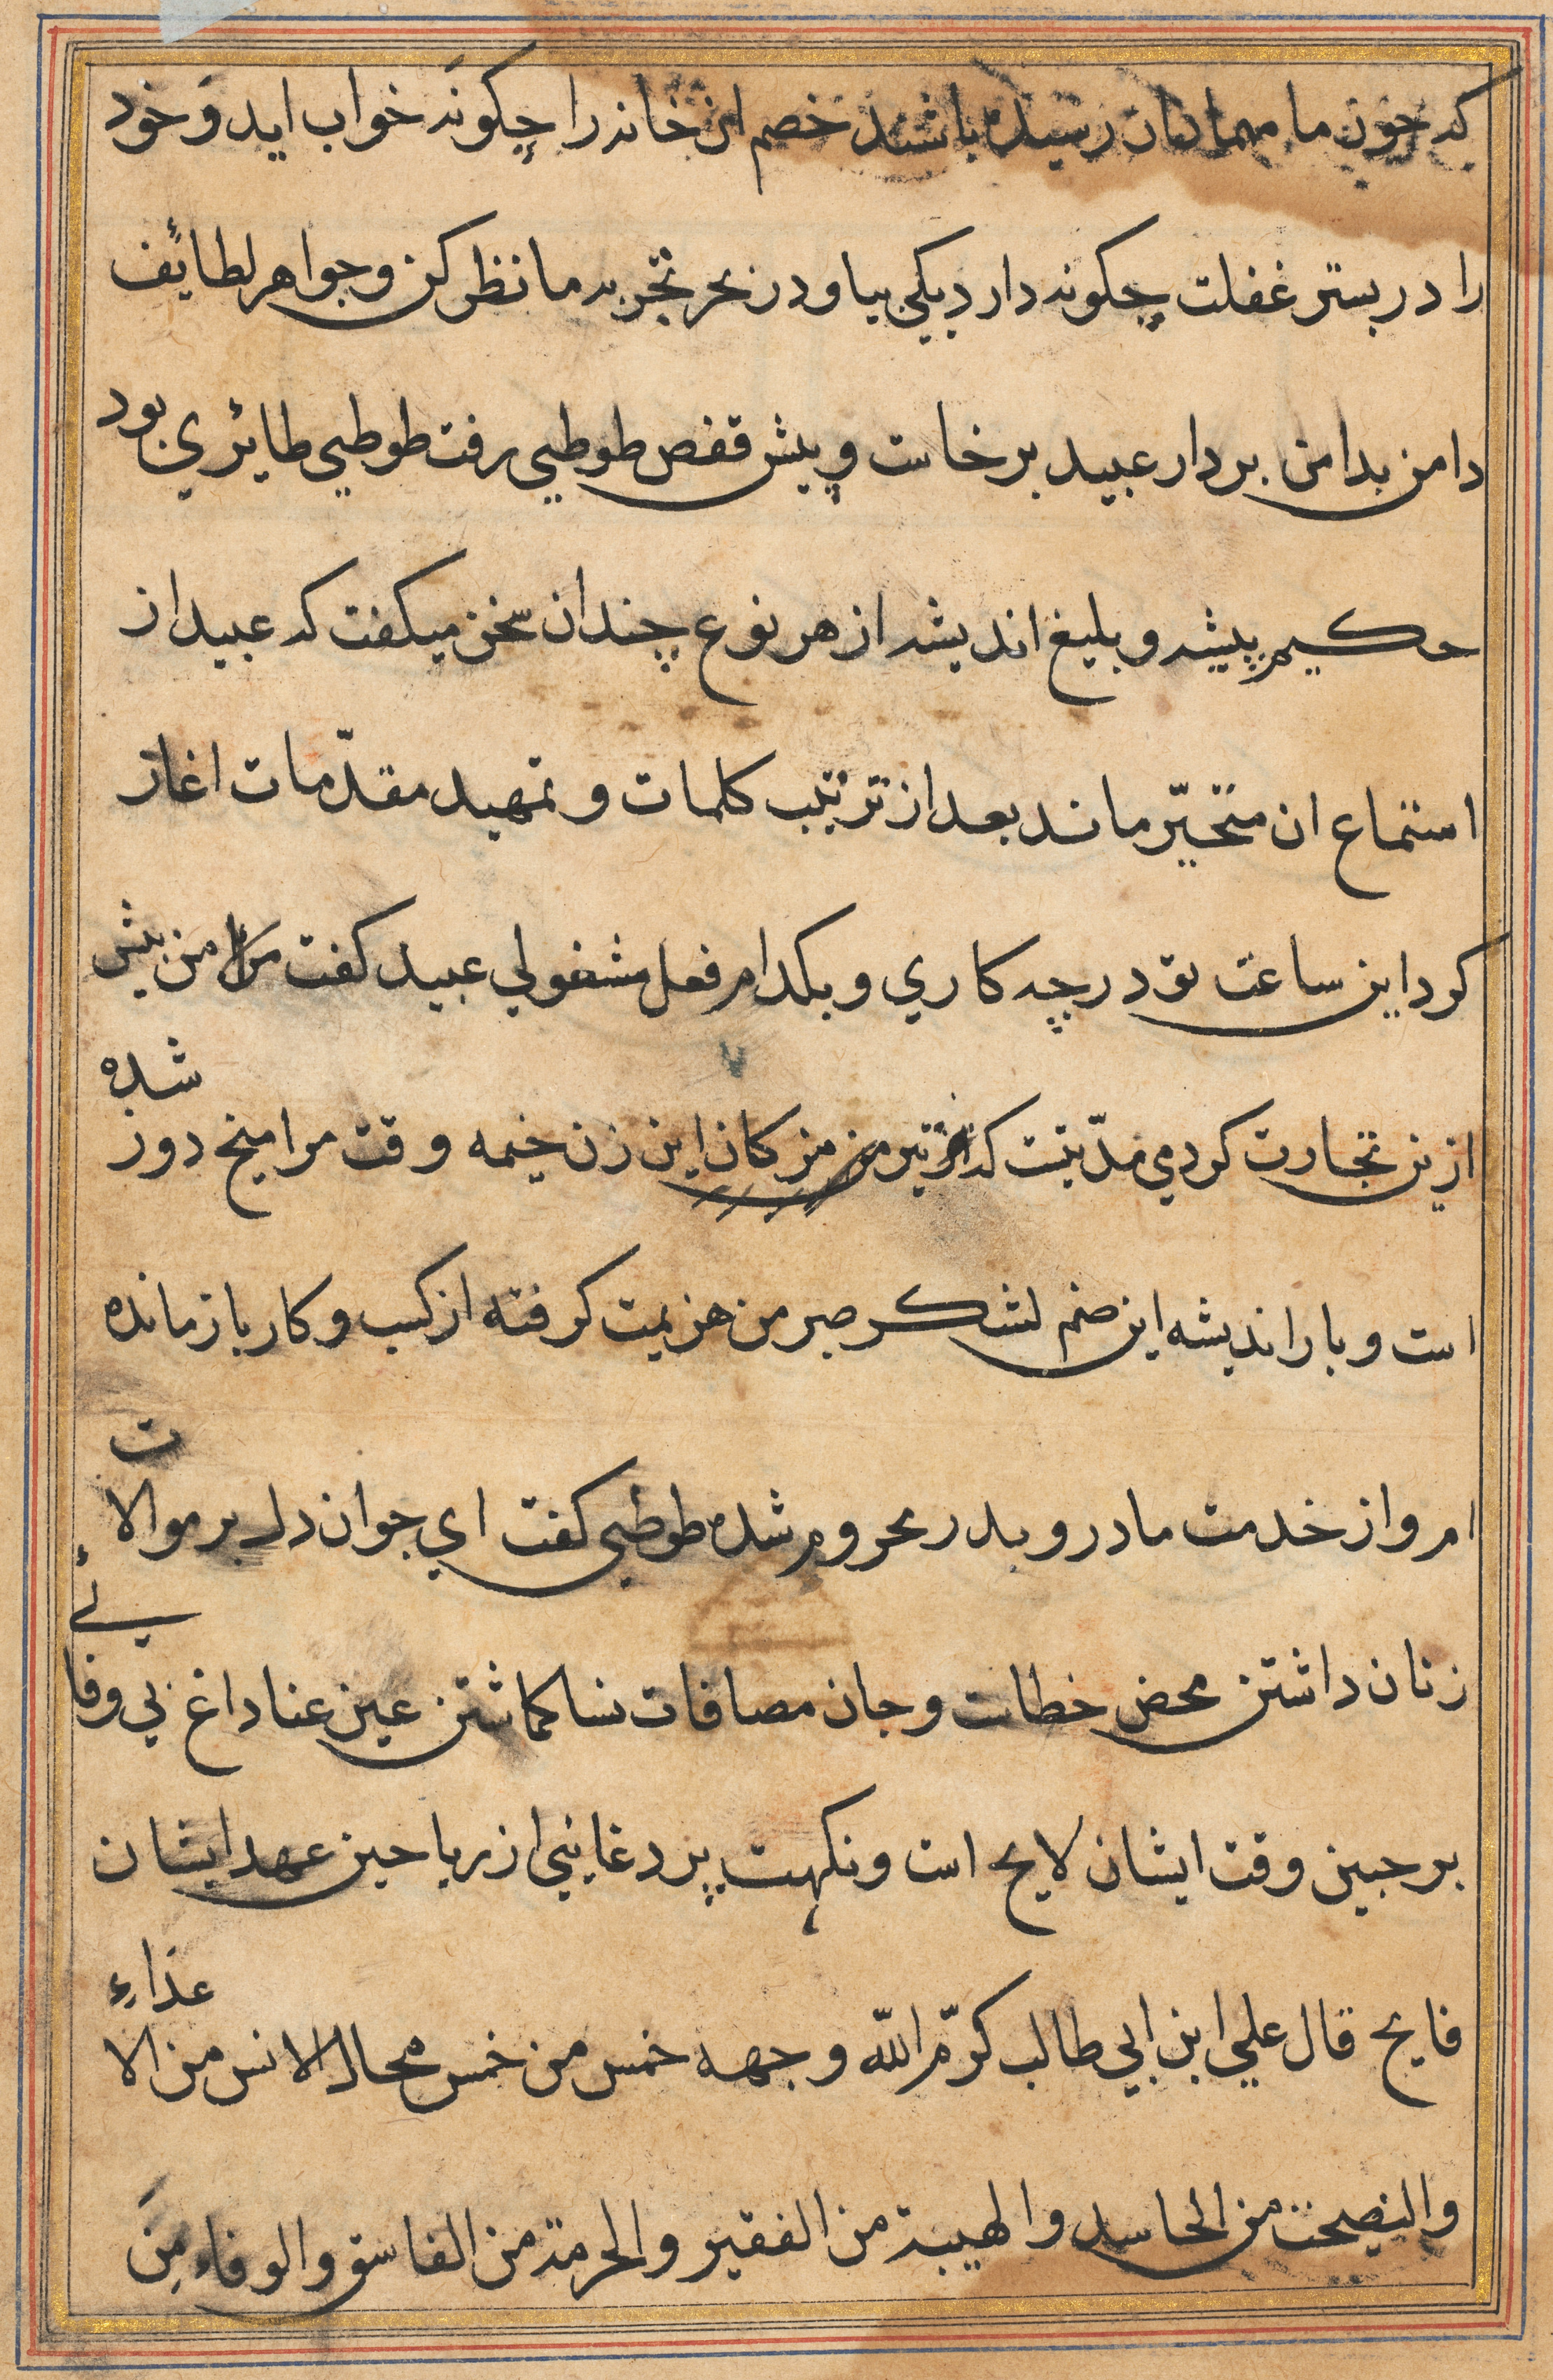 که چون ما مهمانان رسیده باشند خصم این خانه را چکونه خواب اید و خود
را در بستر غفلت چکونه دارد یکی بیا و در بحر تجربه ما نظر کن و جواهر لطایف
دامن بدامن بردار عبید برخاست و پیش قفص طوطی رفت طوطی طایری بود
حکیم پیشه و بلیغ اندیشه از هر نوع چندان سخن میکفت که عبید از
استماع ان متحیّر ماند بعد از ترتیب کلمات و تمهید مقدّمات اغاز
کرد این ساعت تو در چه کاری و بکدام فعل مشغولی عبید کفت من پیش
ازین تجارت کردمی مدّتیست که تیر مژکان این زن خیمه وقت مرا میخ دوز شده
است و بار اندیشه این صنم لشکر صبر من هزیمت کرفته از کسب و کار باز مانده
ام و از خدمت مادر و پدر محروم شده طوطی کفت ای جوان دل بر موالات
زنان داشتن محض خطاست و جان مصافات نسا کماشتن عین عنا داغ بی وفائی
بر جبین وقت ایشان لایح است و نکهت پر دغایی از ریاحین عهد ایشان
فایح قال علي ابن ابي طالب کرّم الله وجهه خمس من خمس محال الانس من الاعداء
والنصیحة من الحاسد والهیبة من الفقیر والحرمة من الفاسق والوفاء من